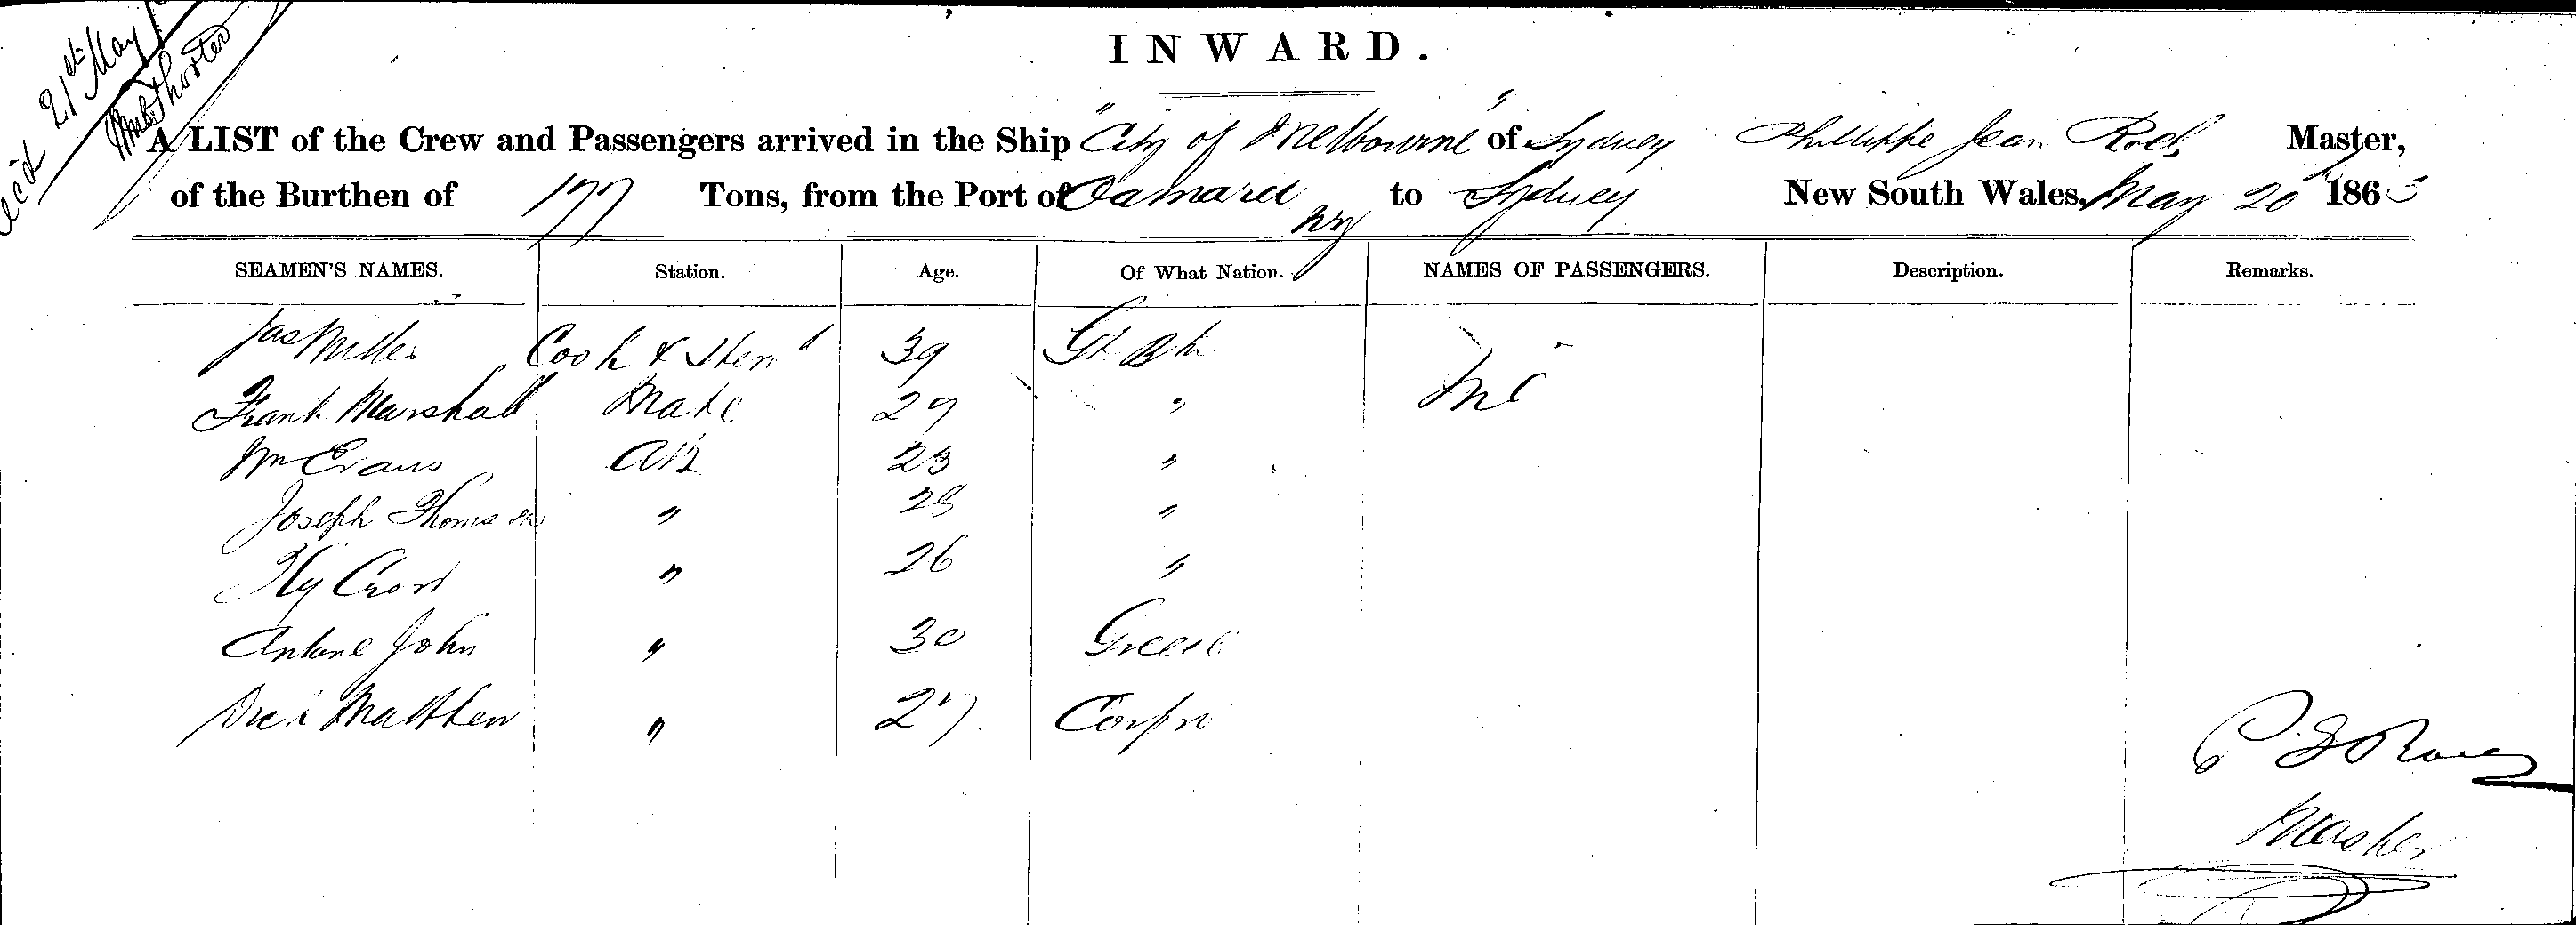 21st May
INWARD.
A LIST of the Crew and Passengers arrived in the Ship "City of Melbourne" of Sydney Phillippe Jean Master,
of the Burthen of 177 Tons, from the Port of Oamaru NZ to Sydney New South Wales, May 20th 1863
SEAMEN'S NAMES. Station. Age. Of What Nation. NAMES OF PASSENGERS. Description. Remarks.
Jas Miller Cook & Stew'd 39 Gt Bn
Frank Marshall Mate 29 " Nil
Wm Evans AB 23 "
Joseph Thomson " 28 "
Hy " 26 "
Antone John " 30 Greece
Matthew " 27.
P J
Master